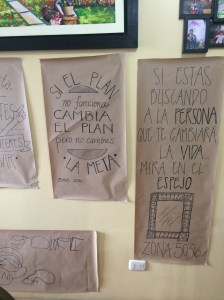 SI EL PLAN
no funciona
CAMBIA
EL PLAN
pero no cambies
LA META
SI ESTÁS
BUSCANDO
A LA PERSONA
QUE TE CAMBIARÁ
LA VIDA...
MIRA EN EL
ESPEJO
ZONA 5036